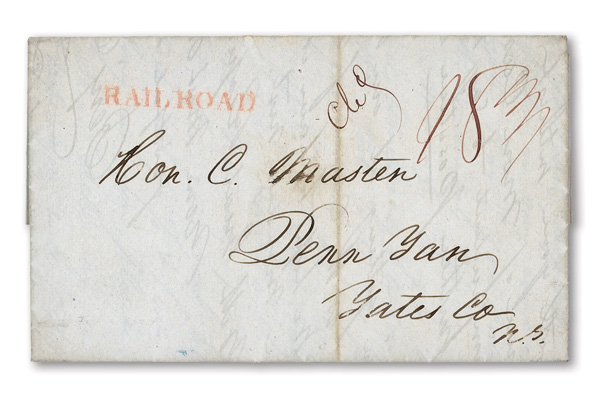 RAILROAD
Chd
18¾
Hon. C. Masten
Penn Yan
Yates Co
N.Y.